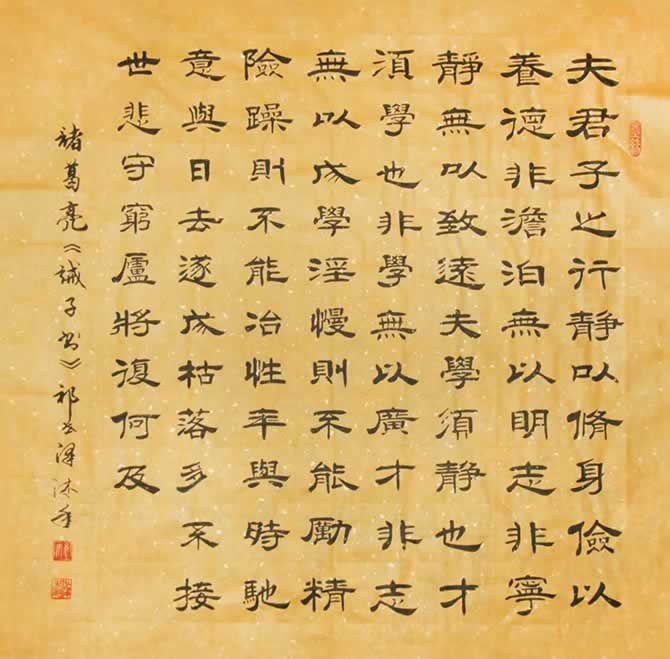 夫君子之行靜以脩身儉以
養德非澹泊無以明志非寧
靜無以致遠夫學須靜也才
須學也非學無以廣才非志
無以成學淫慢則不能勵精
險躁則不能冶性年與時馳
意與日去遂成枯落多不接
世悲守窮廬將復何及
諸葛亮《誡子书》祁